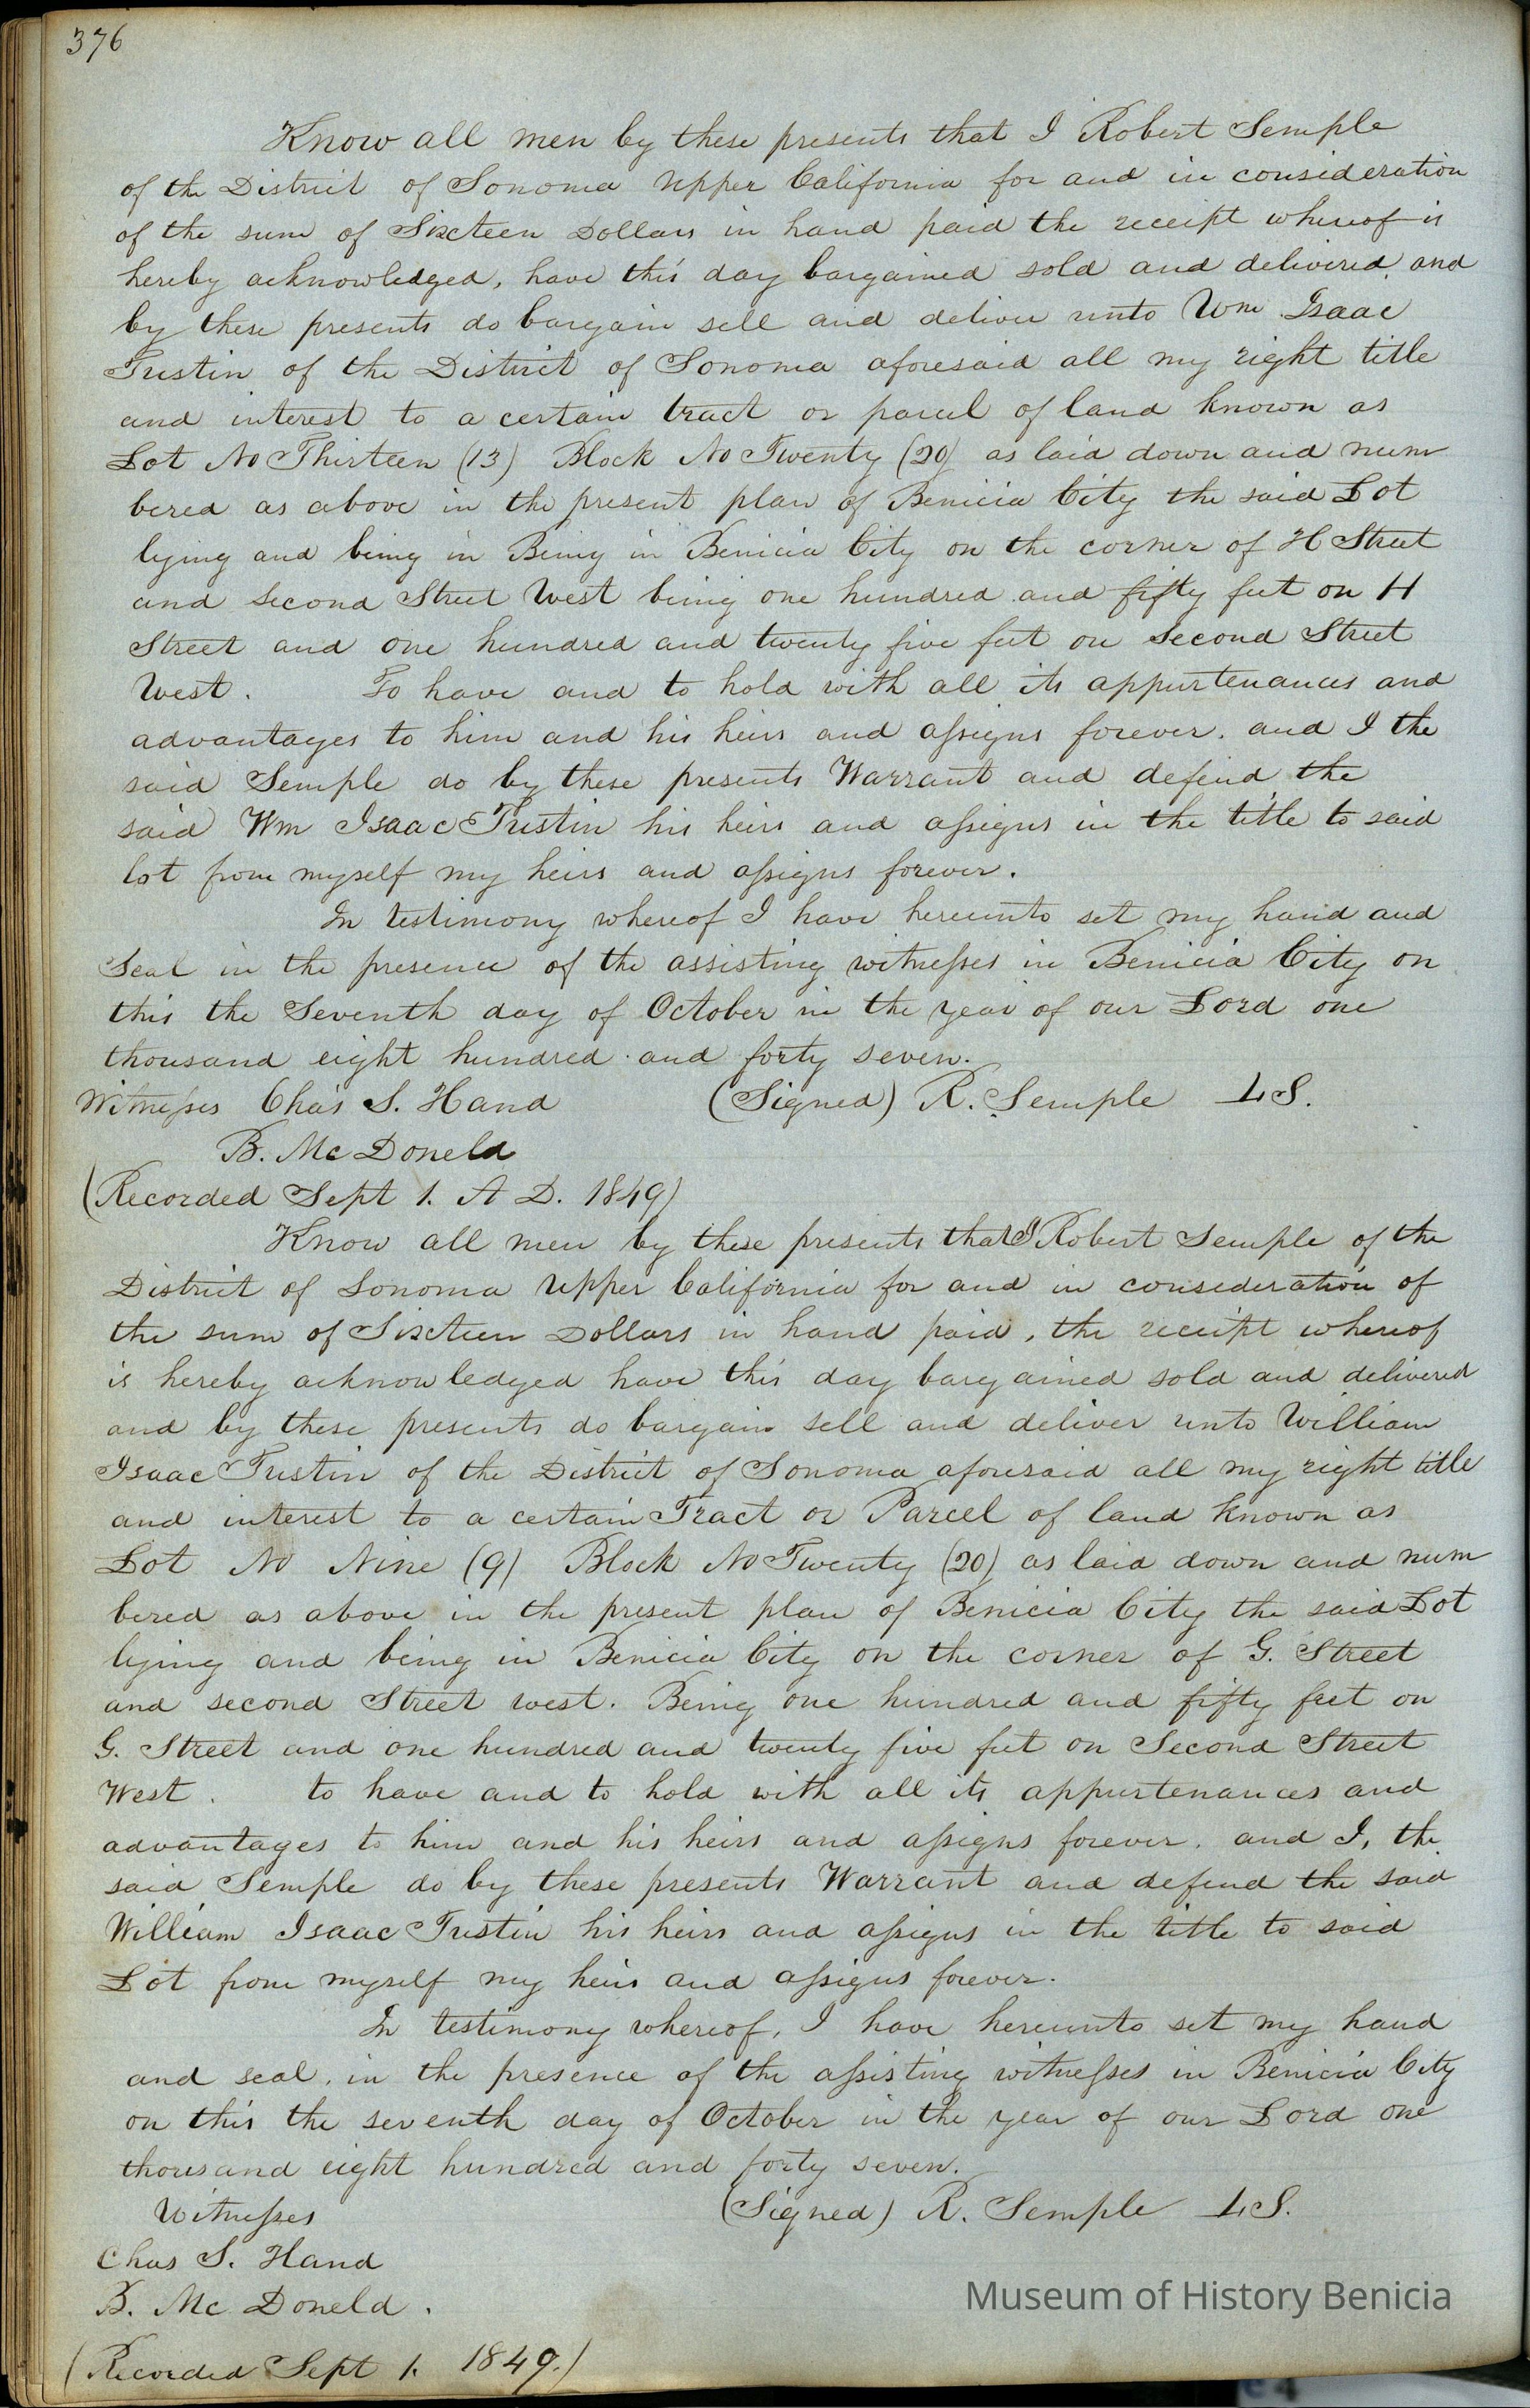 376
Know all men by these presents that I Robert Semple
of the District of Sonoma Upper California for and in consideration
of the sum of Sixteen Dollars in hand paid the receipt whereof is
hereby acknowledged, have this day bargained sold and delivered and
by these presents do bargain sell and deliver unto Wm Isaac
Tustin of the District of Sonoma aforesaid all my right title
and interest to a certain tract or parcel of land known as
Lot No Thirteen (13) Block No Twenty (20) as laid down and num
bered as above in the present plan of Benicia City the said Lot
lying and being in Being in Benicia City on the corner of H Street
and Second Street West being one hundred and fifty feet on H
Street and one hundred and twenty five feet on Second Street
West. To have and to hold with all its appurtenances and
advantages to him and his heirs and assigns forever. and I the
said Semple do by these presents Warrant and defend the
said Wm Isaac Tustin his heirs and assigns in the title to said
lot from myself my heirs and assigns forever.
In testimony whereof I have hereunto set my hand and
Seal in the presence of the assisting witnesses in Benicia City on
this the Seventh day of October in the year of our Lord one
thousand eight hundred and forty seven.
Witnesses Chas S. Hand (Signed) R. Semple L.S.
B. Mc Doneld
(Recorded Sept 1. A D. 1849)
Know all men by these presents that I Robert Semple of the
District of Sonoma Upper California for and in consederation of
the sum of Sixteen Dollars in hand paid, the receipt whereof
is hereby acknowledged have this day bargained sold and delivered
and by these presents do bargain sell and deliver unto William
Isaac Tustin of the District of Sonoma aforesaid all my right title
and interest to a certain Tract or Parcel of land known as
Lot No Nine (9) Block No Twenty (20) as laid down and num
bered as above in the present plan of Benicia City the said Lot
lying and being in Benicia City on the corner of G. Street
and second Street west. Being one hundred and fifty feet on
G. Street and one hundred and twenty five feet on Second Street
West. to have and to hold with all its appurtenances and
advantages to him and his heirs and assigns forever. and I, the
said Semple do by these presents Warrant and defend the said
William Isaac Tustin his heirs and assigns in the title to said
Lot from myself my heirs and assigns forever.
In testimony whereof, I have hereunto set my hand
and seal, in the presence of the assisting witnesses in Benicia City
on this the seventh day of October in the year of our Lord one
thousand eight hundred and forty seven.
Witnesses (Signed) R. Semple L.S.
Chas S. Hand
B. Mc Doneld.
(Recorded Sept 1. 1849.)
Museum of History Benicia